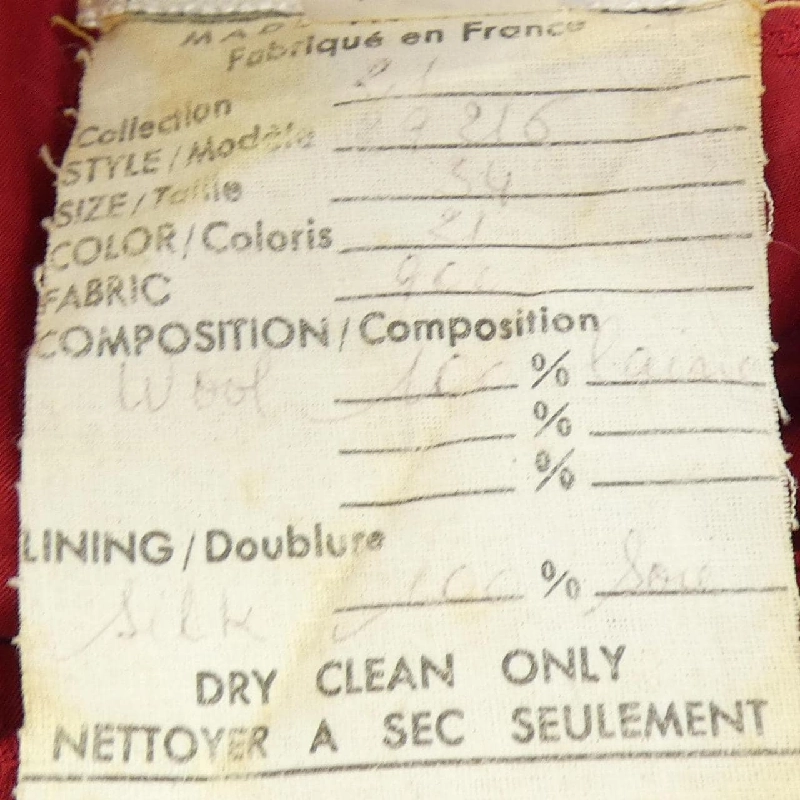 Fabriqué en France
Collection
STYLE/Modèle 216
SIZE/Taille 34
COLOR/Coloris 21
FABRIC
COMPOSITION/Composition
Wool 100 % laine
%
%
LINING/Doublure
Silk 100 % Soie
DRY CLEAN ONLY
NETTOYER A SEC SEULEMENT